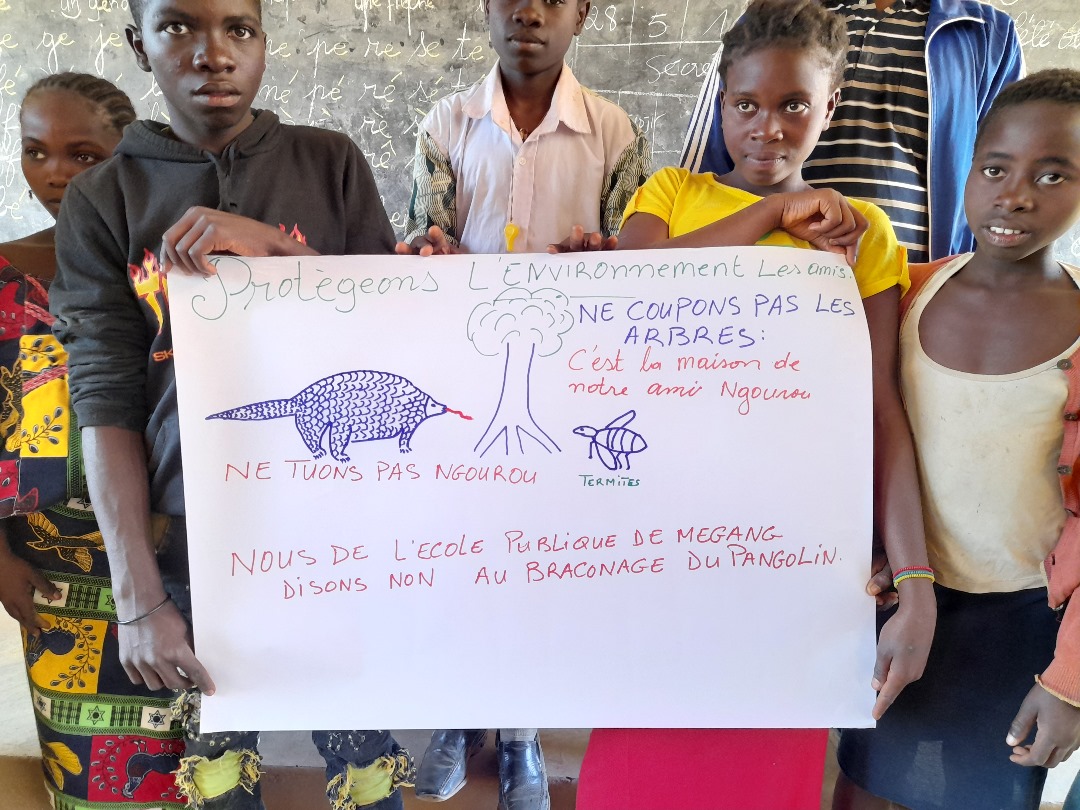 ge je
pe re se te
né pé ré sé
28 5 1
Protègeons L'ENVIRONNEMENT Les amis.
NE COUPONS PAS LES
ARBRES:
C'est la maison de
notre ami Ngourou
NE TUONS PAS NGOUROU
TERMITES
NOUS DE L'ECOLE PUBLIQUE DE MEGANG
DISONS NON AU BRACONAGE DU PANGOLIN.